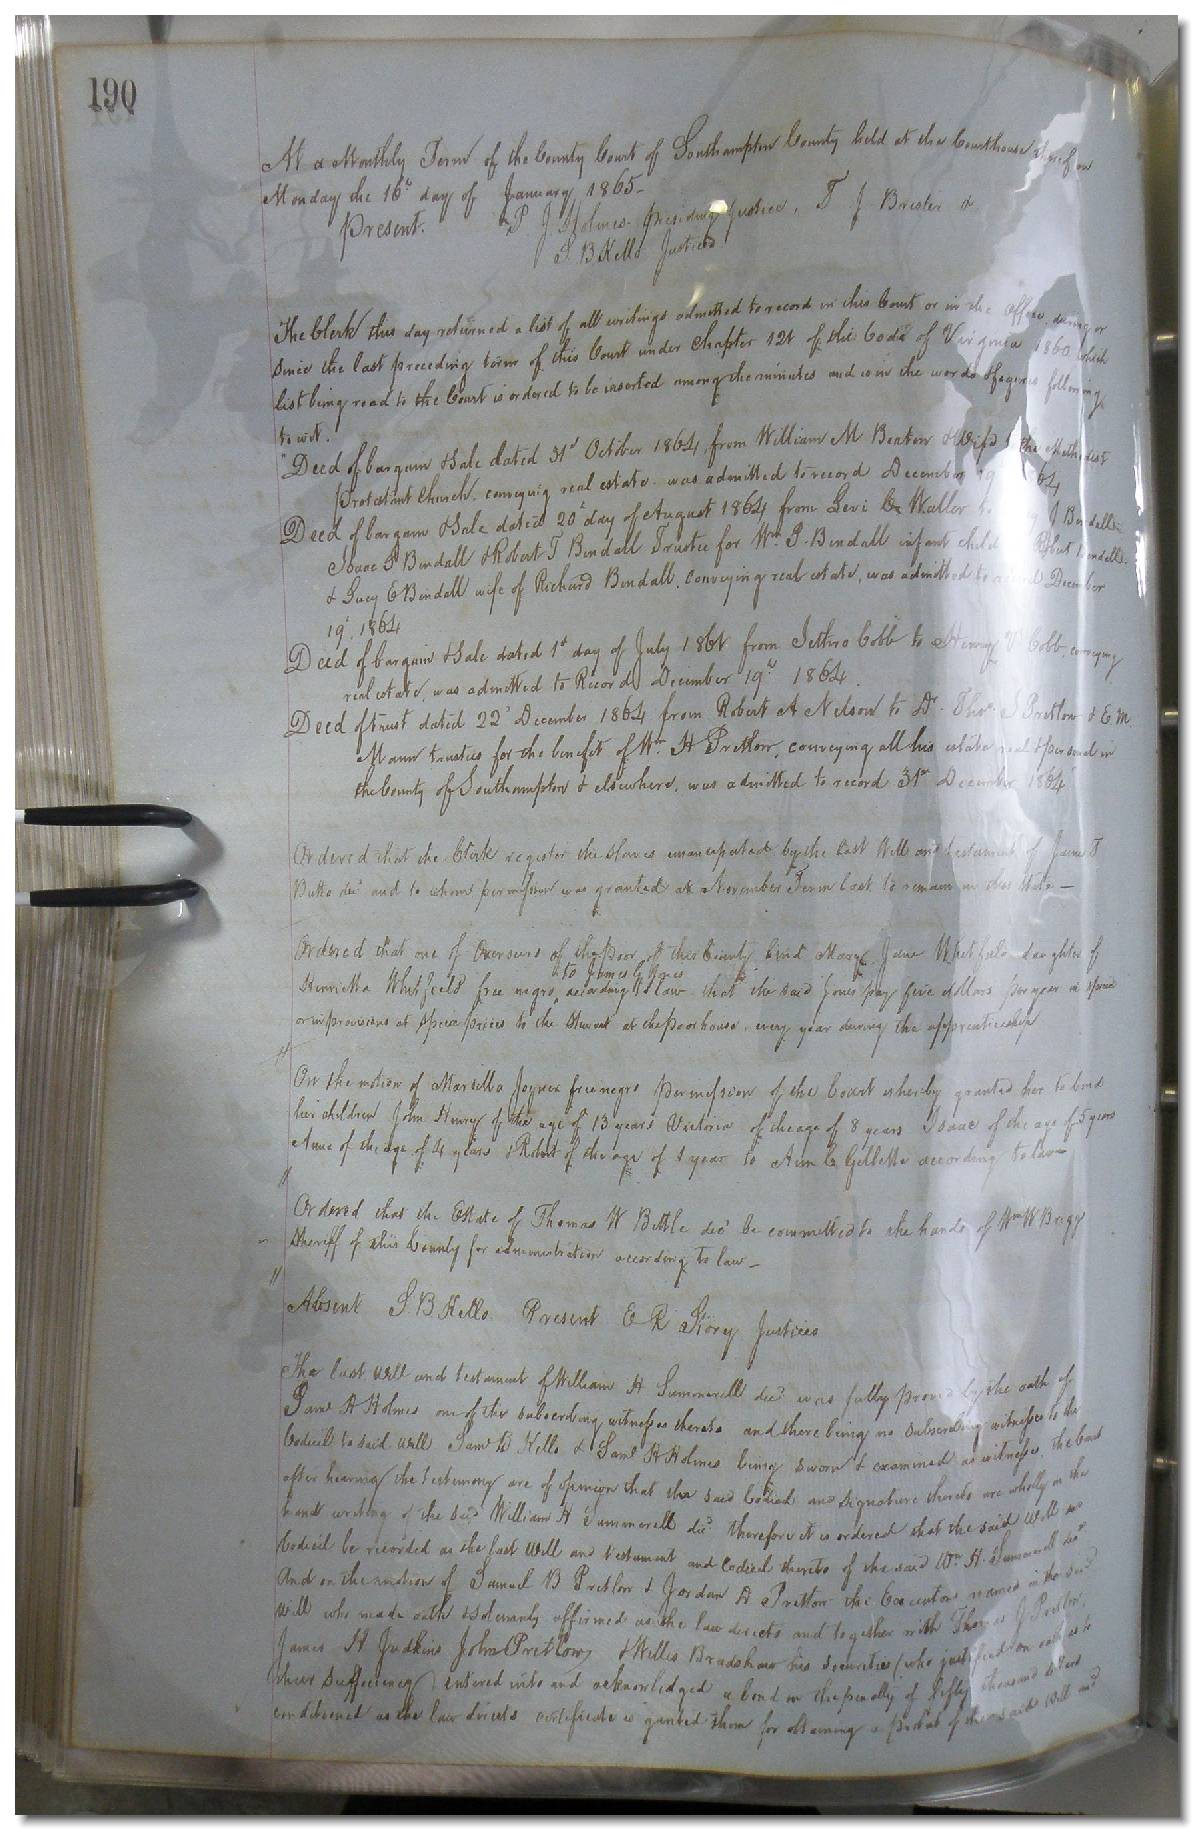 190
At a Monthly Term of the County Court of Southampton County held at the Courthouse thereof on
Monday the 16th day of January 1865-
Present. P J Holmes Presiding Justice, T J Brister &
S. B Kello Justices
The Clerk this day returned a list of all writings admitted to record in this Court or in the Office, during or
since the last preceding term of this Court under Chapter 121 of the Code of Virginia 1860 which
list being read to the Court is ordered to be inserted among the minutes and is in the words & figures following
to wit.
"Deed of bargain & Sale dated 31st October 1864, from William M Beaton & Wife to the Methodist
Protestant Church, conveying real estate was admitted to record December 19 1864
Deed of bargain & Sale dated 20th day of August 1864 from Levi Waller to J Bendall
Isaac P Bendall & Robert T Bendall Trustee for Wm P. Bendall infant child Robert Bendall
& Lucy E Bendall wife of Richard Bendall, conveying real estate, was admitted to record December
19th, 1864
Deed of bargain & Sale dated 1st day of July 1864 from Jethro Cobb to Henry V Cobb, conveying
real estate, was admitted to Record December 19th 1864.
Deed of trust dated 22d December 1864 from Robert A Nelson to Dr. Thos. S Pretlow & E. M.
Mann trustees for the benefit of Wm H Pretlow, conveying all his estate real & personal in
the County of Southampton & elsewhere, was admitted to record 31st December 1864
Ordered that the Clerk register the slaves emancipated by the last Will and testament of James T
Butts decd and to whom permission was granted at November Term last to remain in this State—
Ordered that one of Overseers of the poor of this County bind Mary Jane Whitfield daughter of
to James G Jones
Henrietta Whitfield free negro, according to law that the said Jones pay five dollars per year in specie
or in provisions at specie prices to the Steward at the poorhouse every year during the apprenticeship
On the motion of Marsella Joyner free negro permission of the Court is hereby granted her to bind
her children John Henry of the age of 13 years Victoria of the age of 8 years Isaac of the age of 5 years
Anne of the age of 4 years & Robert of the age of 1 year to Ann C Gillette according to law
Ordered that the Estate of Thomas W Bittle decd be committed to the hands of Wm W Briggs
Sheriff of this County for administration according to law—
Absent S. B Kello. Present E R Story Justices
The last will and testament of William H Summerell decd was fully proved by the oath of
Saml H Holmes one of the subscribing witnesses thereto and there being no subscribing witnesses to the
Codicil to said will Saml B Kello & Saml H Holmes being sworn & examined as witnesses, the Court
after hearing the testimony are of opinion that the said Codicil and signature thereto are wholly in the
hand writing of the said William H Summerell decd therefore it is ordered that the said Will and
Codicil be recorded as the last Will and testament and Codicil thereto of the said Wm. H. Summerell decd.
And on the motion of Samuel B Pretlow & Jordan D Pretlow the Executors named in the said
Will who made oath & solemnly affirmed as the law directs and together with Thomas J Pretlow,
James H Judkins John Pretlow & Willis Bradshaw his securities (who justified on oath as to
their sufficiency) entered into and acknowledged a bond in the penalty of Fifty thousand dollars
conditioned as the law directs certificate is granted them for obtaining a probat of the said Will and